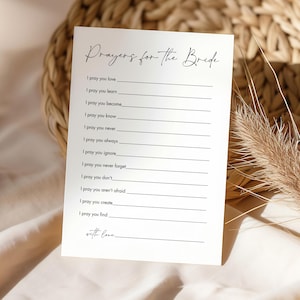 Prayers for the Bride
I pray you love
I pray you learn
I pray you become
I pray you know
I pray you never
I pray you always
I pray you ignore
I pray you never forget
I pray you don't
I pray you aren't afraid
I pray you create
I pray you find
with love